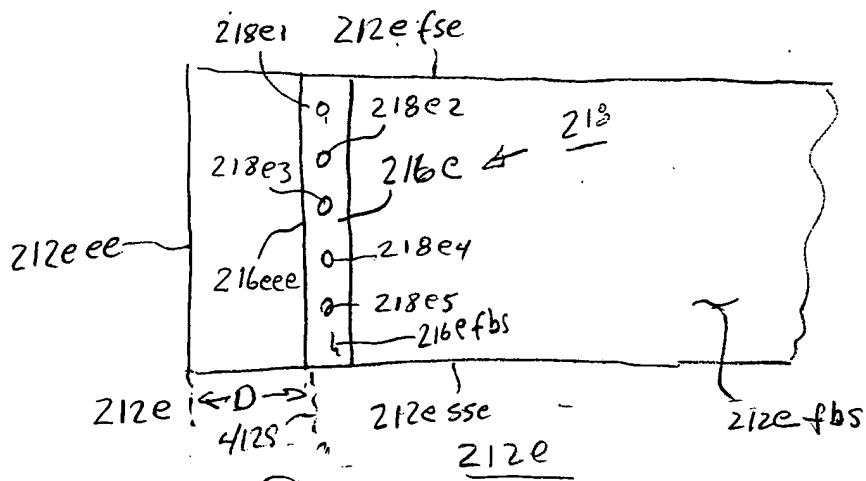 218e1 212e fse
218e2 218
218e3 216e
212e ee
218e4
216eee
218e5
216e fbs
212e D 212e sse 212e fbs
412s
212e